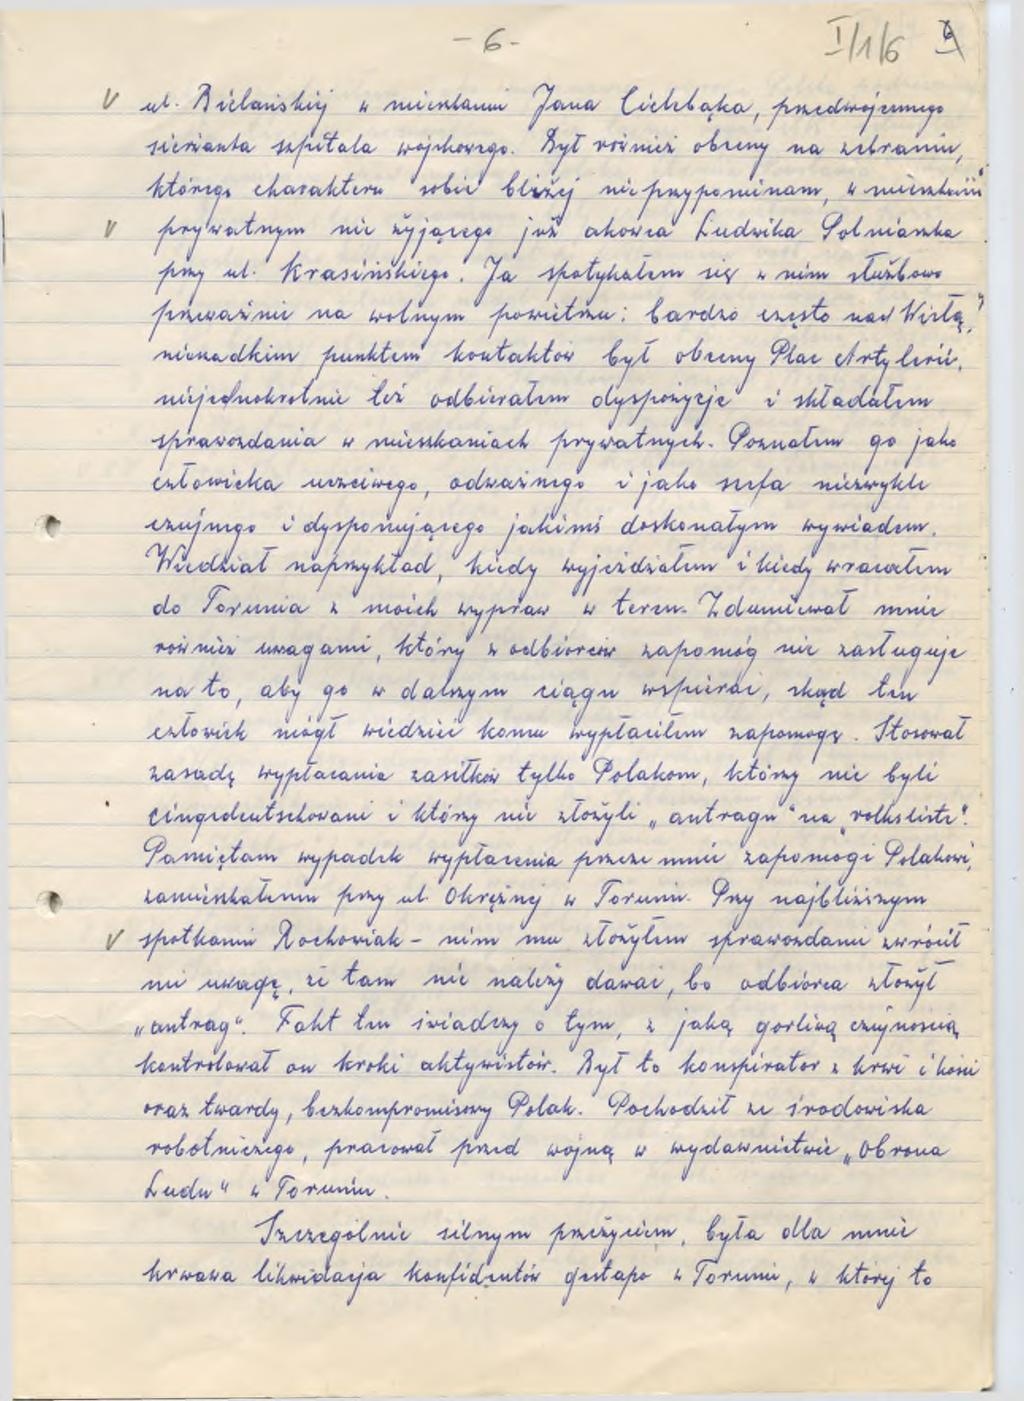 - 6 -
I/1/6
6
V ul. Bielańskiej w mieszkaniu Jana Cielebąka, przedwojennego
sierżanta szpitala wojskowego. Był również obecny na zebraniu,
którego charakteru sobie bliżej nie przypominam, w mieszkaniu
V prywatnym nie żyjącego już akowca Ludwika Solniaszka
przy ul. Krasińskiego. Ja spotykałem się z nim służbowo
przeważnie na wolnym powietrzu: bardzo często nad Wisłą,
nierzadkim punktem kontaktów był obecny Plac Artylerii,
niejednokrotnie też odbierałem dyspozycje i składałem
sprawozdania w mieszkaniach prywatnych. Poznałem go jako
człowieka uczciwego, odważnego i jako szefa niezwykle
czujnego i dysponującego jakimś doskonałym wywiadem.
Wiedział naprzykład, kiedy wyjeżdżałem i kiedy wracałem
do Torunia z moich wypraw w teren. Zdumiewał mnie
również uwagami, który z odbiorców zapomóg nie zasługuje
na to, aby go w dalszym ciągu wspierać, skąd ten
człowiek mógł wiedzieć komu wypłaciłem zapomogę. Stosował
zasadę wypłacania zasiłków tylko Polakom, którzy nie byli
eingedeutschowani i którzy nie złożyli „antragu" na „volksliste".
Pamiętam wypadek wypłacenia przeze mnie zapomogi Polakowi,
zamieszkałemu przy ul. Okrężnej w Toruniu. Przy najbliższym
V spotkaniu Rochowiak - nim mu złożyłem sprawozdanie zwrócił
mi uwagę, że tam nie należy dawać, bo odbiorca złożył
„antrag". Fakt ten świadczy o tym, z jaką gorliwą czujnością
kontrolował on kroki aktywistów. Był to konspirator z krwi i kości
oraz twardy, bezkompromisowy Polak. Pochodził ze środowiska
robotniczego, pracował przed wojną w wydawnictwie „Obrona
Ludu" w Toruniu.
Szczególnie silnym przeżyciem, była dla mnie
krwawa likwidacja konfidentów gestapo w Toruniu, w której to